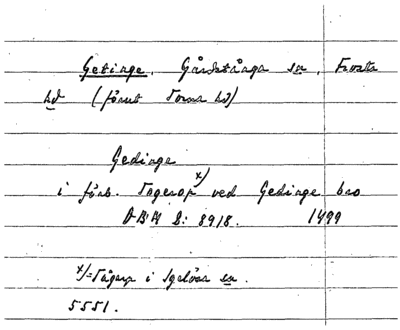 Getinge, Gårdstånga sn, Frosta
hd (förut Torna hd)
Gedinge
i förb. Togerop x) ved Gedinge bro
ÆDA 2: 8918. 1499
x) = Tågarp i Igelösa sn.
5551.